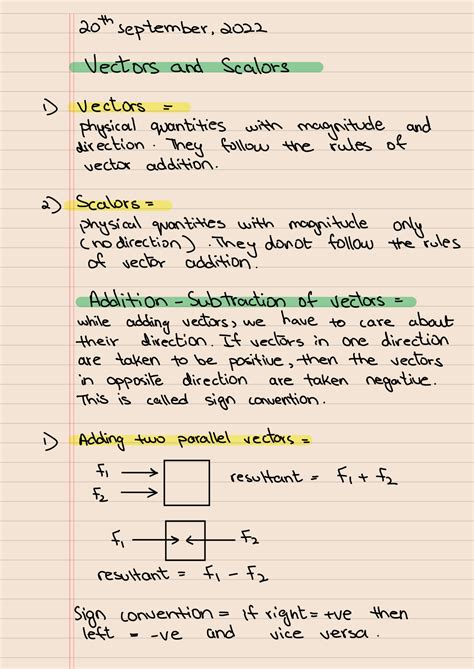 20th september, 2022
Vectors and Scalors
1) vectors =
physical quantities with magnitude and
direction. They follow the rules of
vector addition.
2) Scalors =
physical quantities with magnitude only
(no direction). They donot follow the rules
of vector addition.
Addition - Subtraction of vectors =
while adding vectors, we have to care about
their direction. If vectors in one direction
are taken to be positive, then the vectors
in opposite direction are taken negative.
This is called sign convention.
1) Adding two parallel vectors =
F₁ → resultant = F₁ + F₂
F₂ →
F₁ → ← F₂
resultant = F₁ - F₂
Sign convention = If right = +ve then
left = -ve and vice versa.